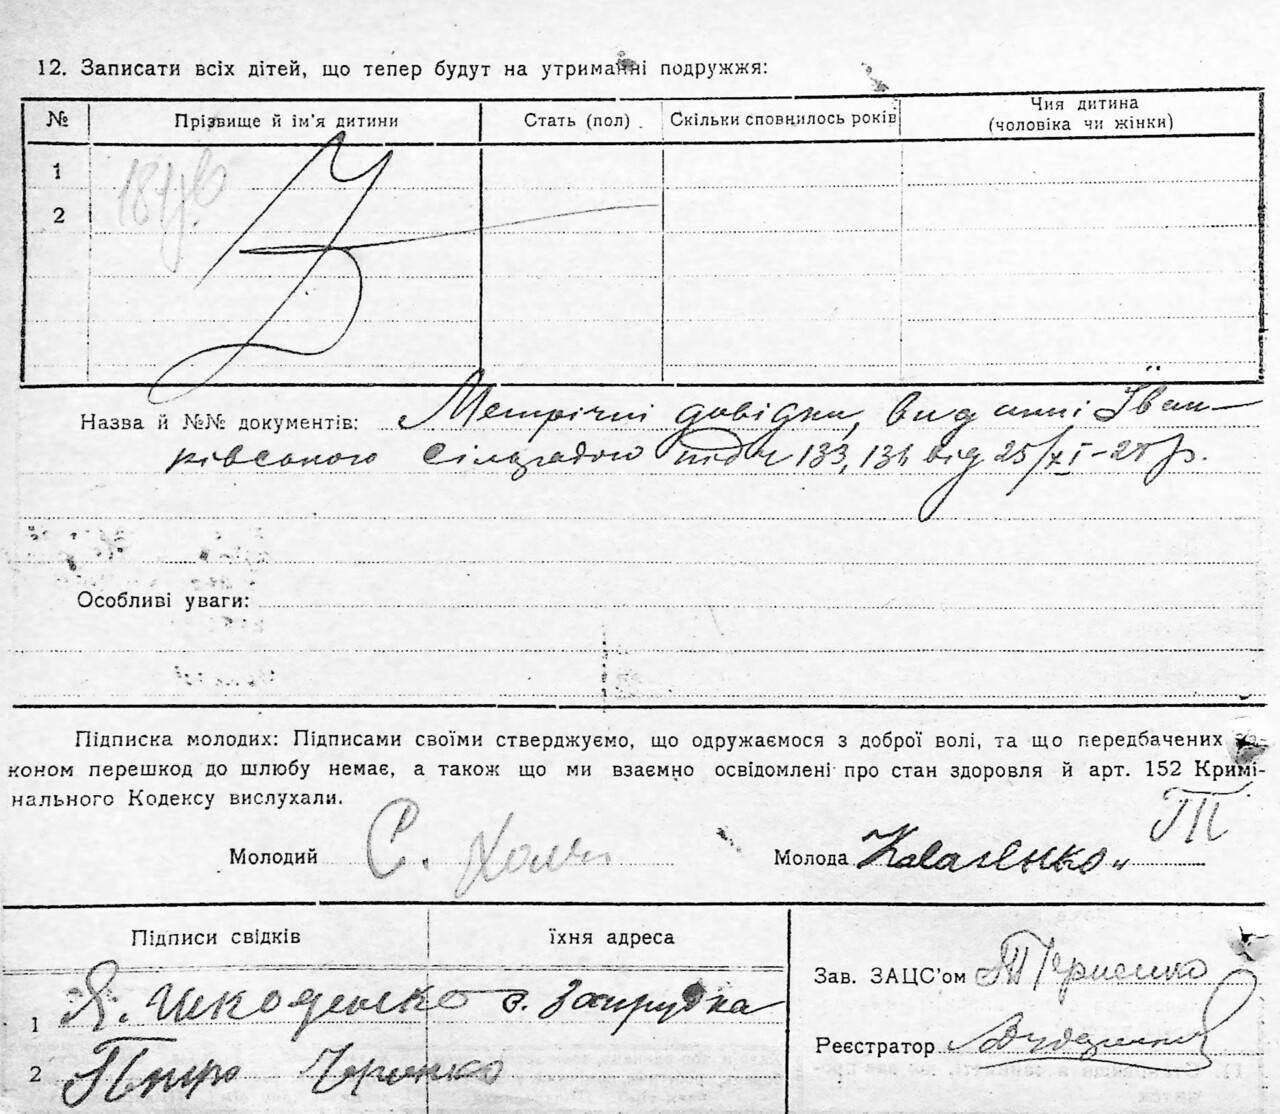 12. Записати всіх дітей, що тепер будут на утриманні подружжя:
№ Прізвище й ім'я дитини Стать (пол) Скільки сповнилось років Чия дитина
(чоловіка чи жінки)
1
2
Назва й №№ документів: Метрічні довідки, видані Їван-
ківською сільрадою під ч 133, 134 від 25/XI-25 р.
Особливі уваги:
Підписка молодих: Підписами своїми стверджуємо, що одружаємося з доброї волі, та що передбачених за-
коном перешкод до шлюбу немає, а також що ми взаємно освідомлені про стан здоровля й арт. 152 Кримі-
нального Кодексу вислухали.
Молодий С. Молода
Підписи свідків їхня адреса
Зав. ЗАЦС'ом
1 Я.
Реєстратор
2